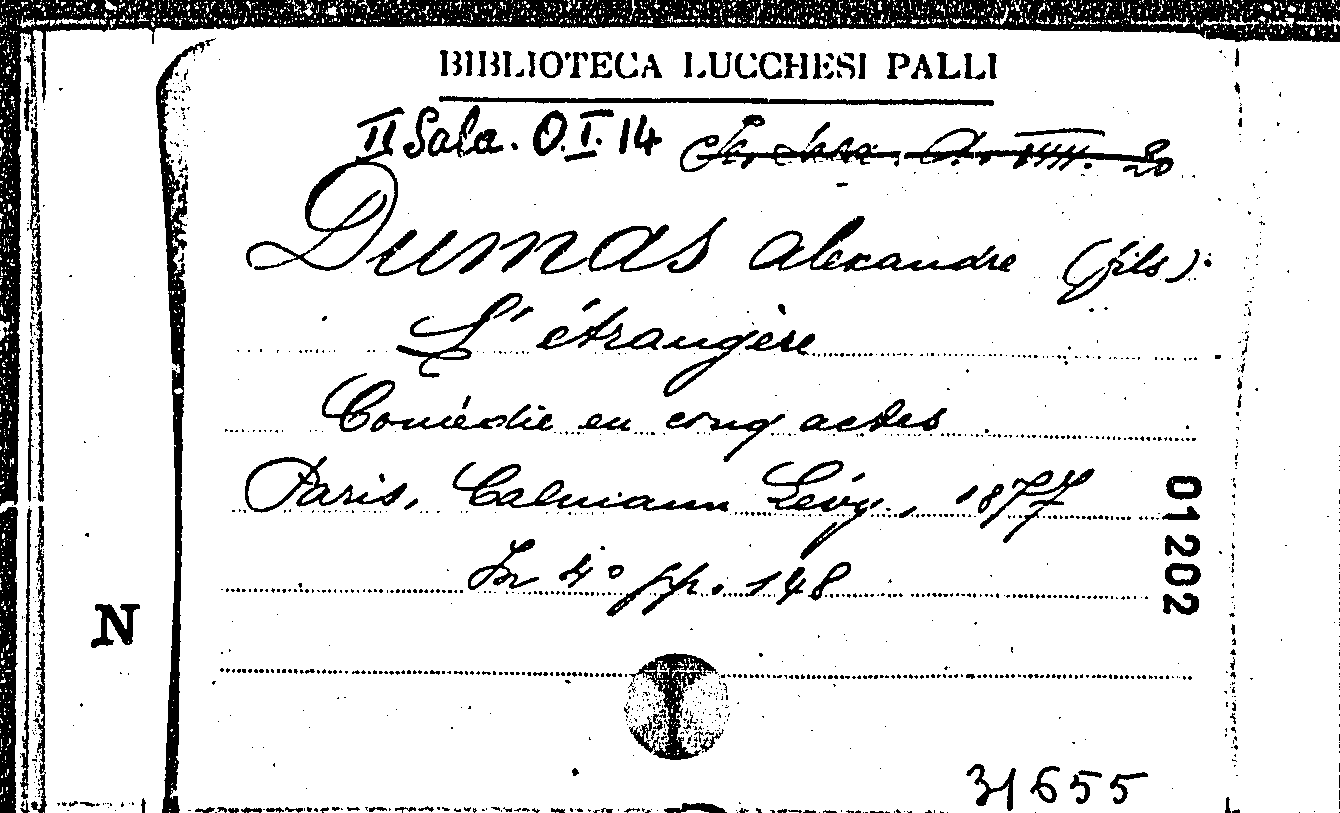 BIBLIOTECA LUCCHESI PALLI
II Sala. O.I. 14
Dumas Alexandre (fils).
L'étrangère
Comédie en cinq actes
Paris, Calmann Lévy, 1877
In 4° pp. 148
01202
N
31655